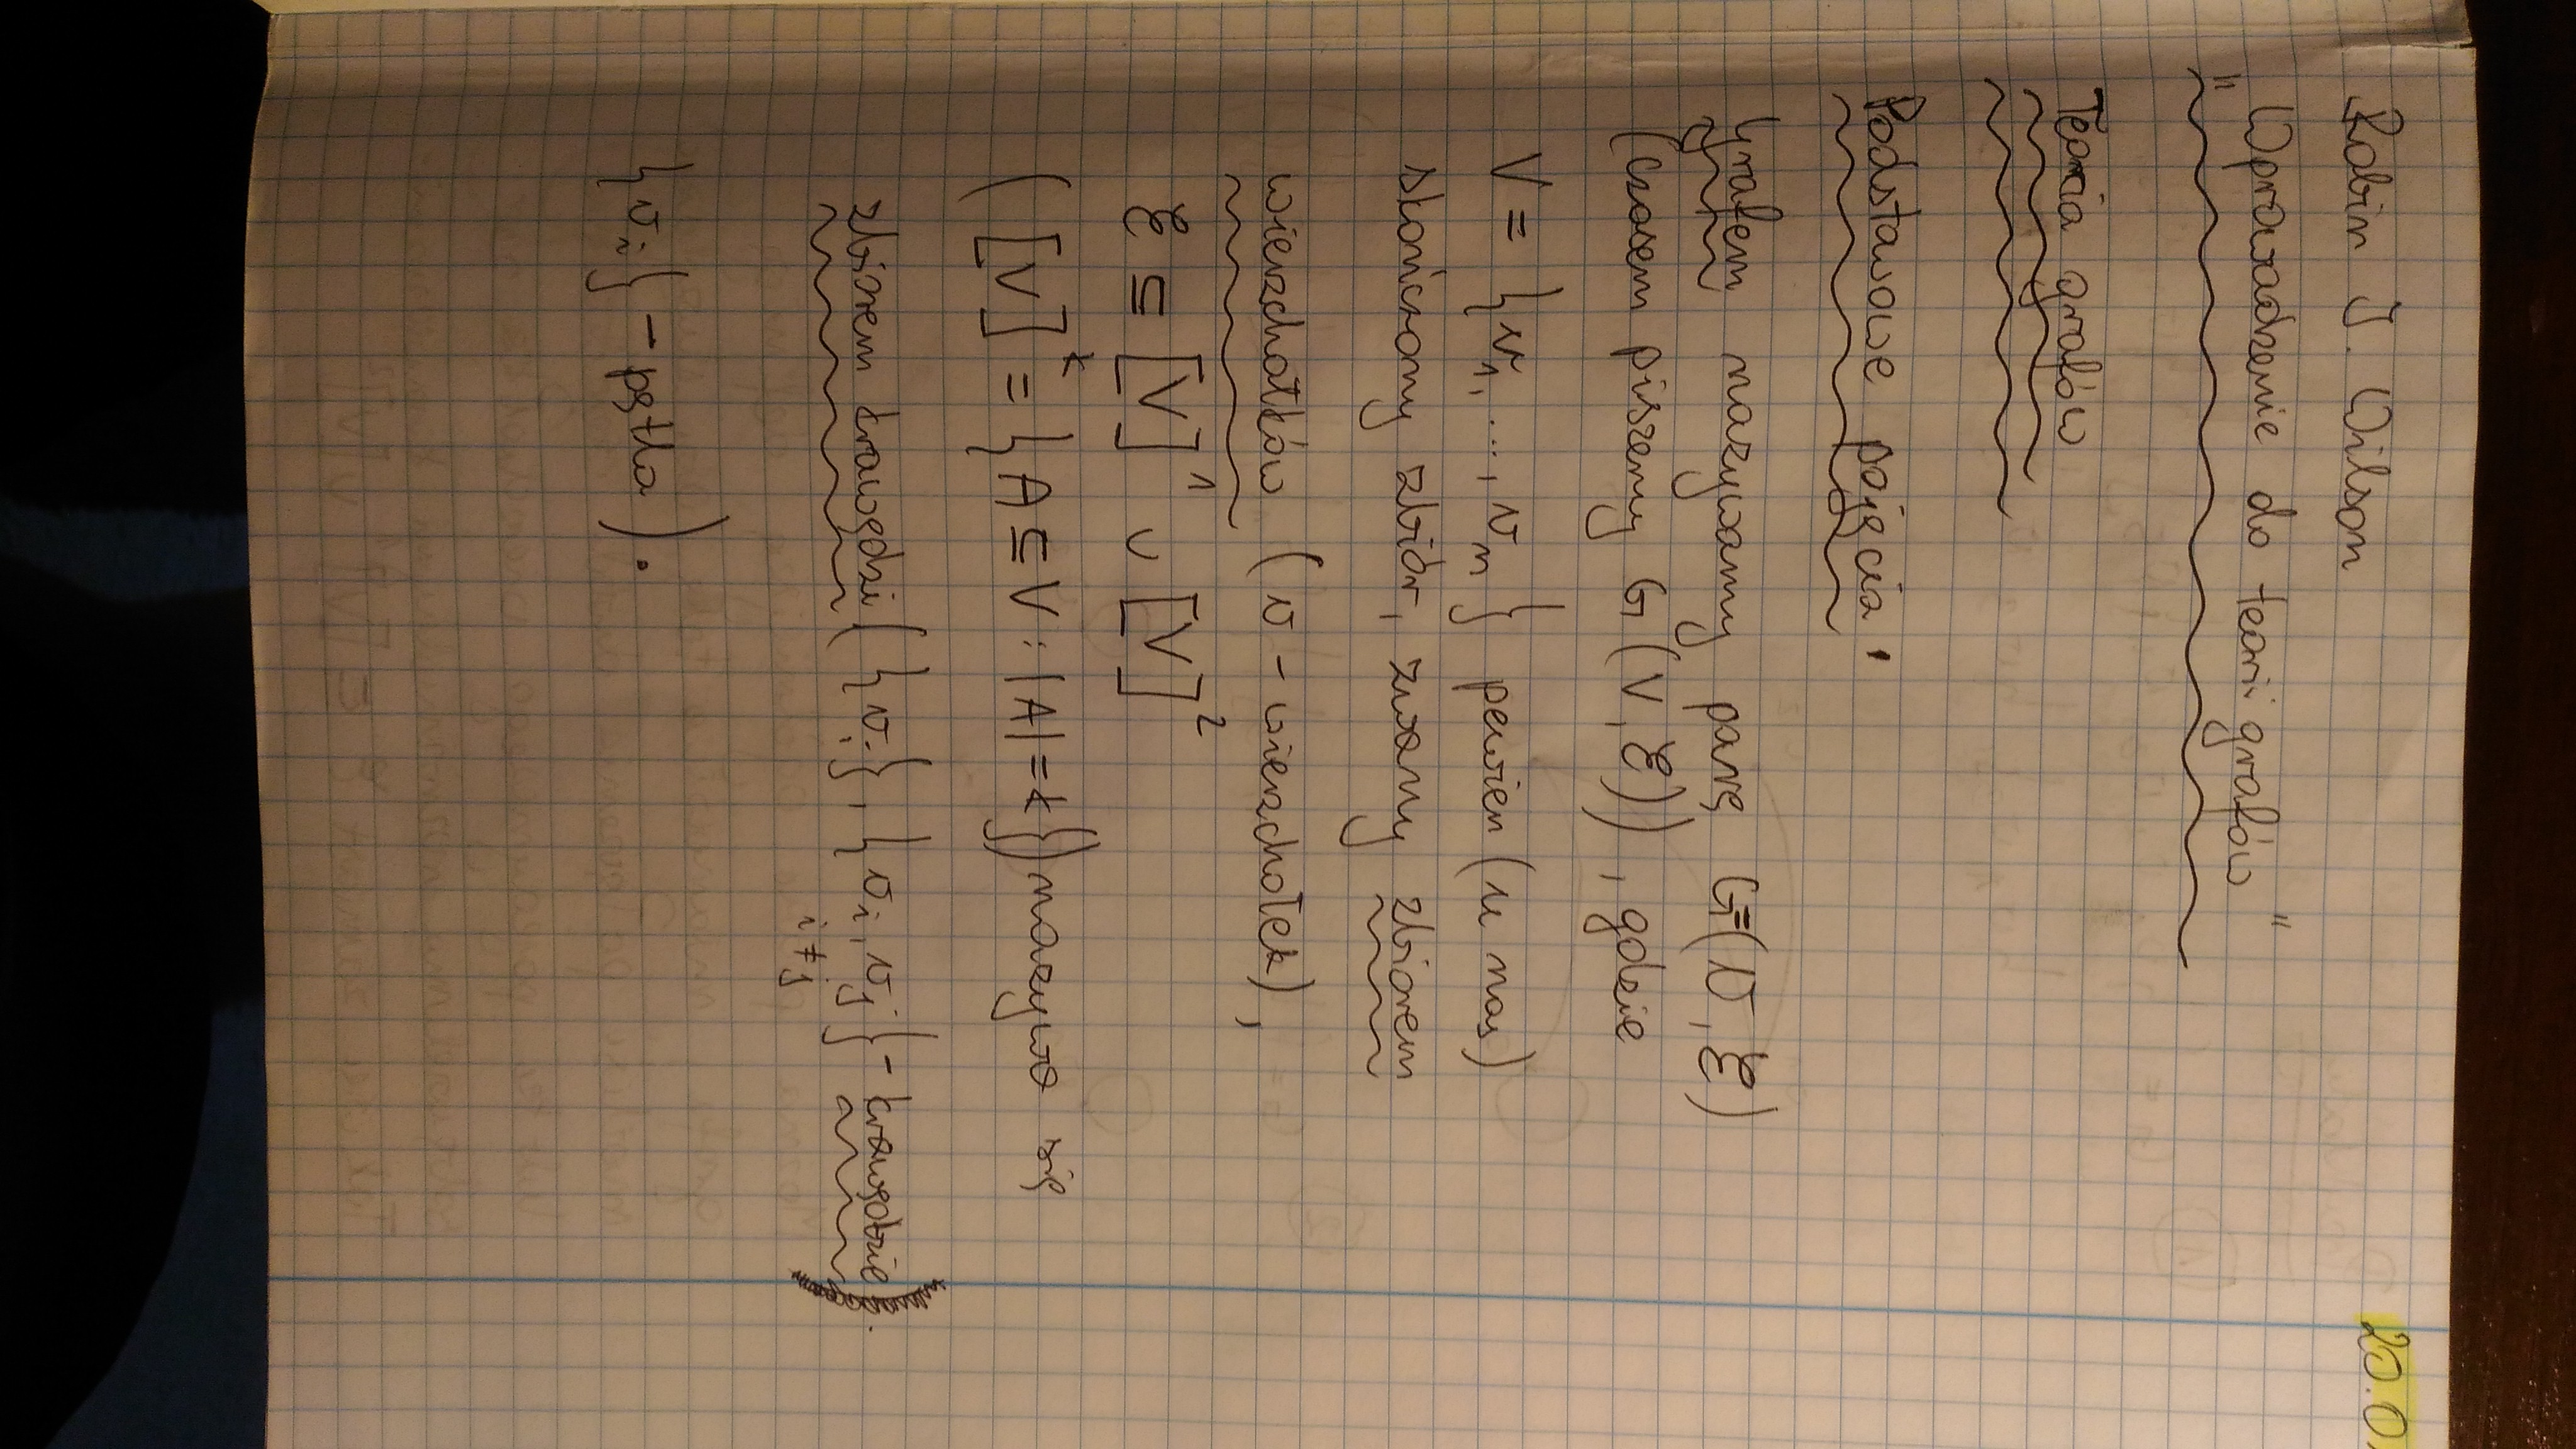 20.0
Robin J. Wilson
„Wprowadzenie do teorii grafów"
Teoria grafów
Podstawowe pojęcia.
Grafem nazywamy parę G=(V,ℰ)
(czasem piszemy G(V,ℰ)), gdzie
V = {v₁, ..., vₙ} pewien (u nas)
skończony zbiór, zwany zbiorem
wierzchołków (v - wierzchołek),
ℰ ⊆ [V]¹ ∪ [V]²
([V]ᵏ = {A ⊆ V : |A| = k}) nazywa się
zbiorem krawędzi ({vᵢ}, {vᵢ, vⱼ} - krawędzie
i ≠ j
{vᵢ} - pętla).